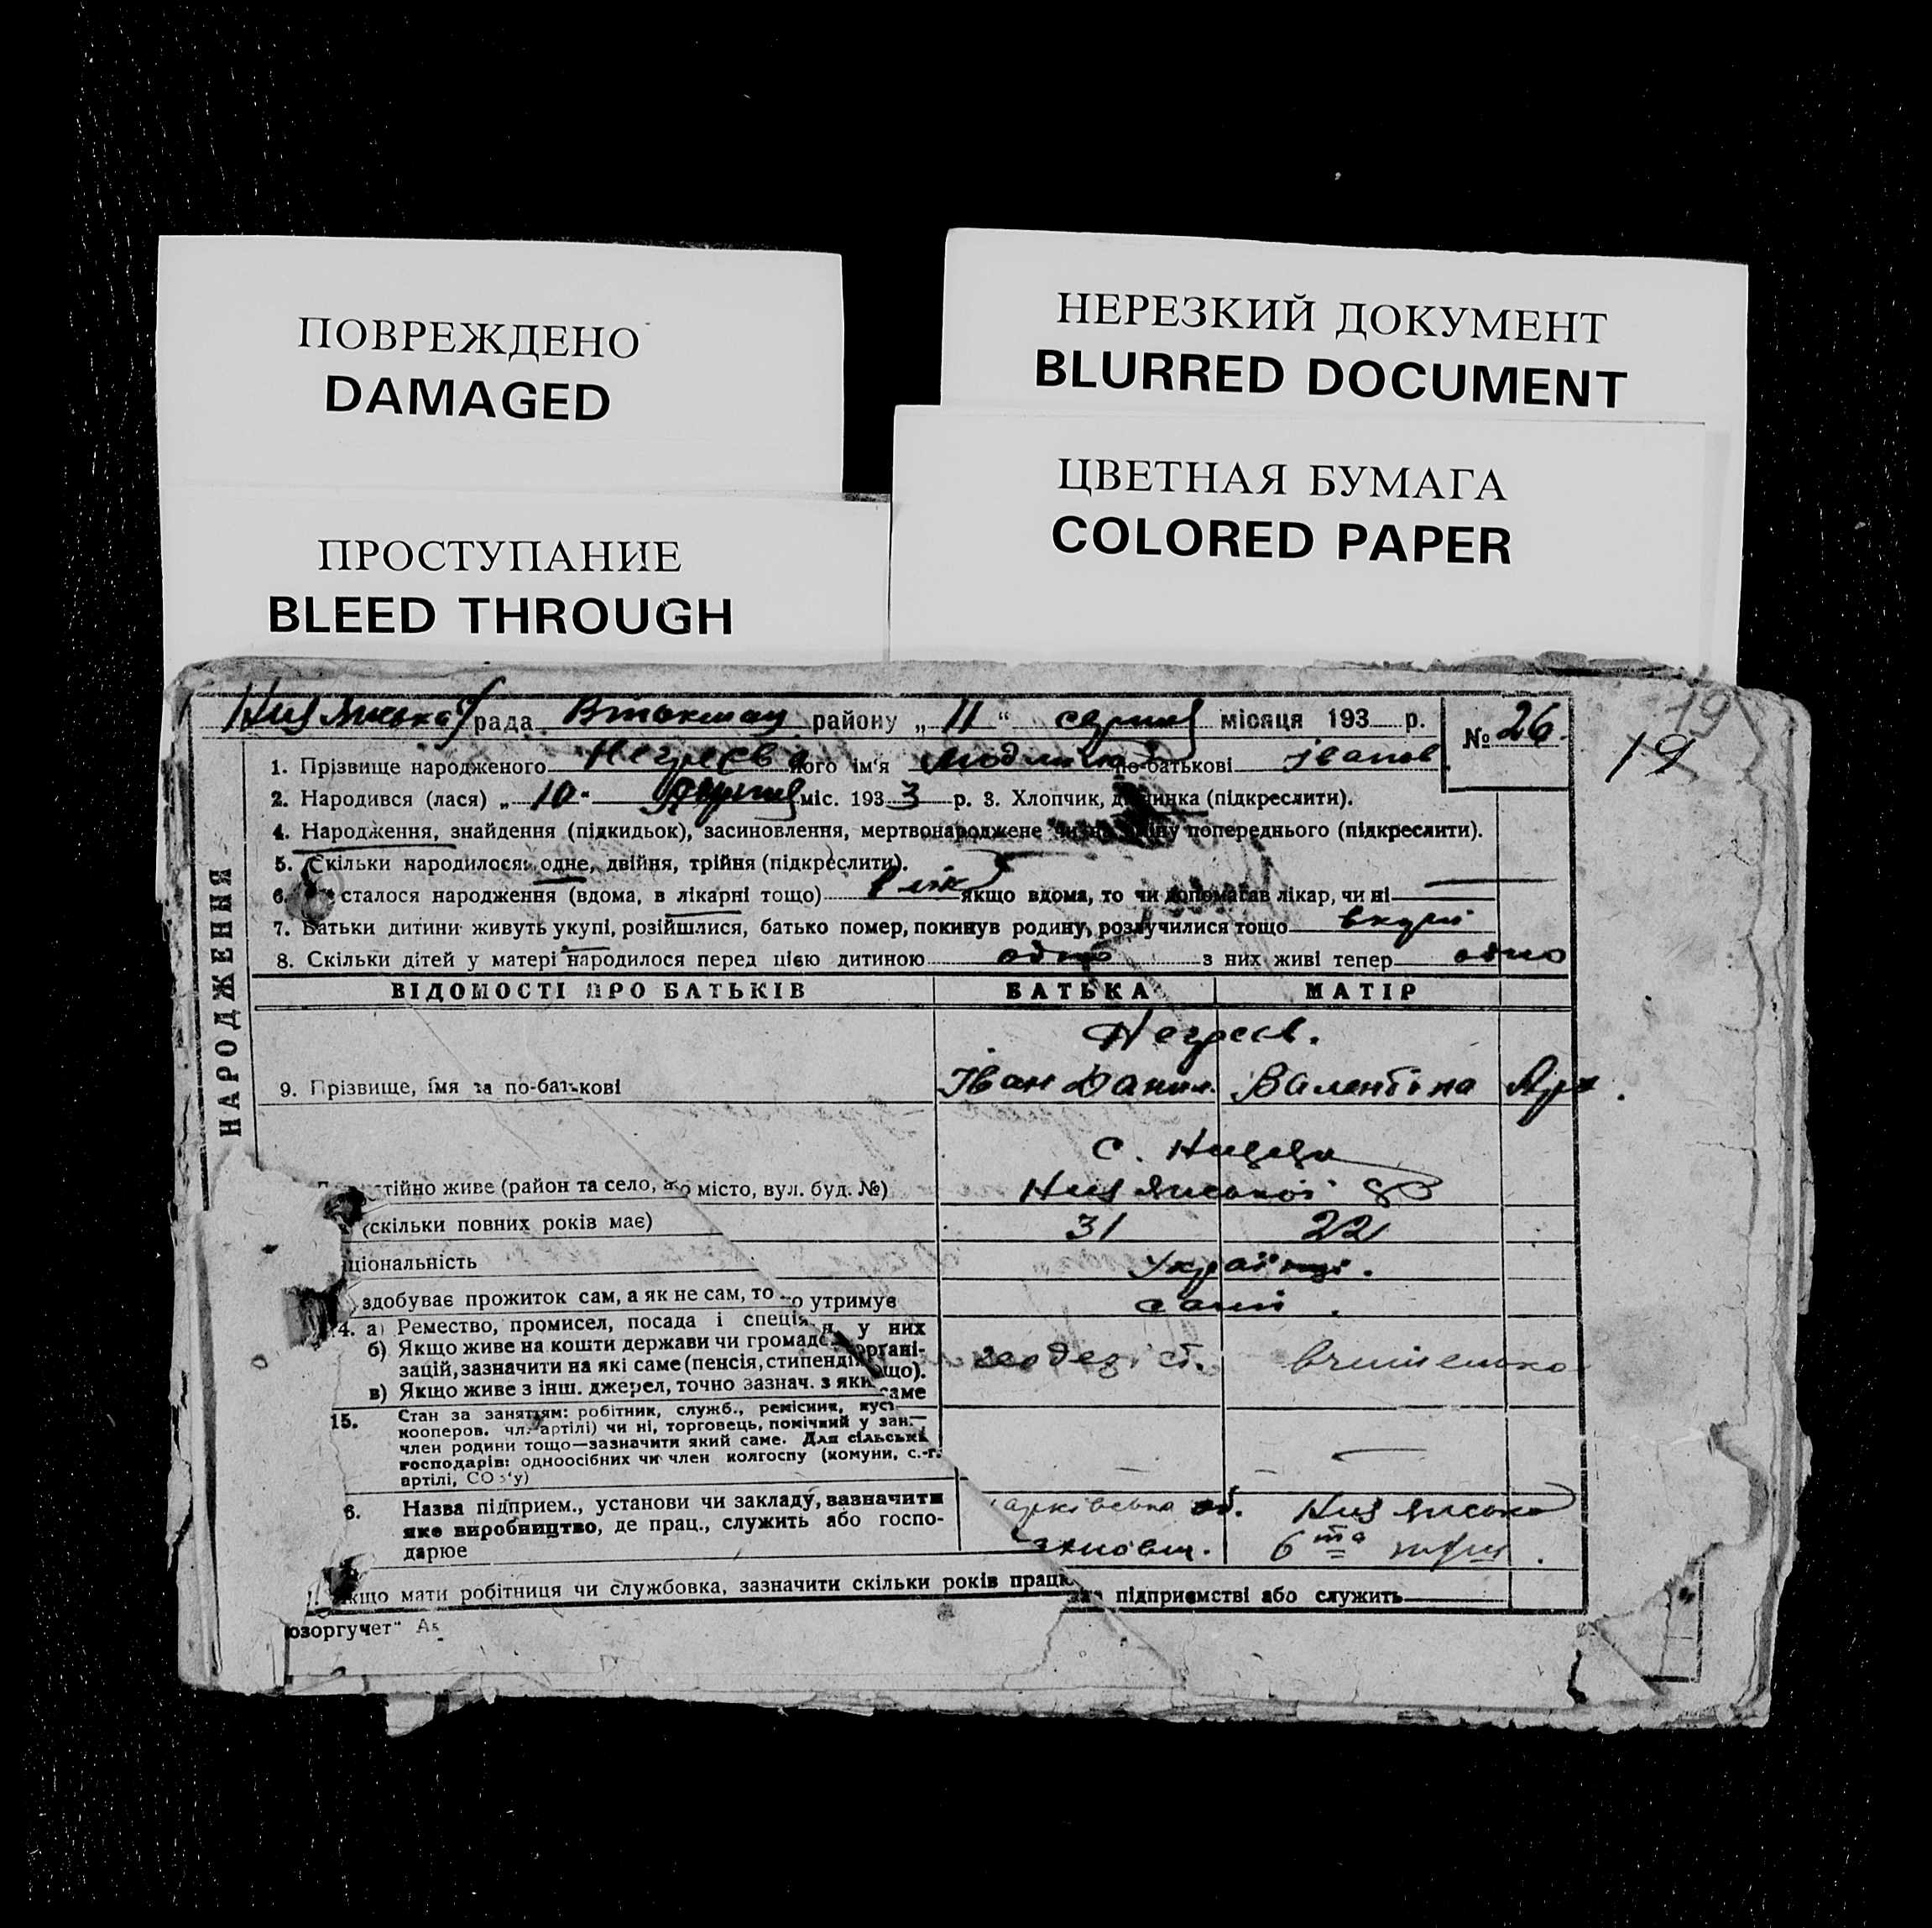 ПОВРЕЖДЕНО
DAMAGED
НЕРЕЗКИЙ ДОКУМЕНТ
BLURRED DOCUMENT
ЦВЕТНАЯ БУМАГА
COLORED PAPER
ПРОСТУПАНИЕ
BLEED THROUGH
19
рада районy „ 11 “ серпня місяця 193 р. № 26.
19
1. Прізвище народженого Негреєва його ім'я по-батькові Іванов
2. Народився (лася) „ 10 “ Серпня міс. 193 3 р. 3. Хлопчик, дівчинка (підкреслити).
4. Народження, знайдення (підкидьок), засиновлення, мертвонароджене попереднього (підкреслити).
5. Скільки народилося: одне, двійня, трійня (підкреслити).
6. сталося народження (вдома, в лікарні тощо) якщо вдома, то чи допомагав лікар, чи ні
7. Батьки дитини живуть укупі, розійшлися, батько помер, покинув родину, розлучилися тощо вкупі
8. Скільки дітей у матері народилося перед цією дитиною одно з них живі тепер одно
НАРОДЖЕННЯ
ВІДОМОСТІ ПРО БАТЬКІВ БАТЬКА МАТІР
Негреєв.
9. Прізвище, імя та по-батькові Іван Данил. Валентіна
с.
стійно живе (район та село, або місто, вул. буд. №)
(скільки повних років має) 31 22
ціональність Українці.
здобуває прожиток сам, а як не сам, то хто утримує самі.
4. а) Ремество, промисел, посада і у них
б) Якщо живе на кошти держави чи громадс. органі-
зацій, зазначити на які саме (пенсія, стипендія тощо). геодезіст. вчителька
в) Якщо живе з інш. джерел, точно зазнач. з яких саме
15. Стан за заняттям: робітник, служб., ремісник, куст.
кооперов. чл. артілі) чи ні, торговець, помічний у зан.—
член родини тощо—зазначити який саме. Для сільськ.
господарів: одноосібних чи член колгоспу (комуни, с.-г.
артілі, СОЗ'у)
6. Назва підприєм., установи чи закладу, зазначити
яке виробництво, де прац., служить або госпо-
дарюе
арківська об. 6 та
якщо мати робітниця чи службовка, зазначити скільки років працює на підприємстві або служить
озоргучет"